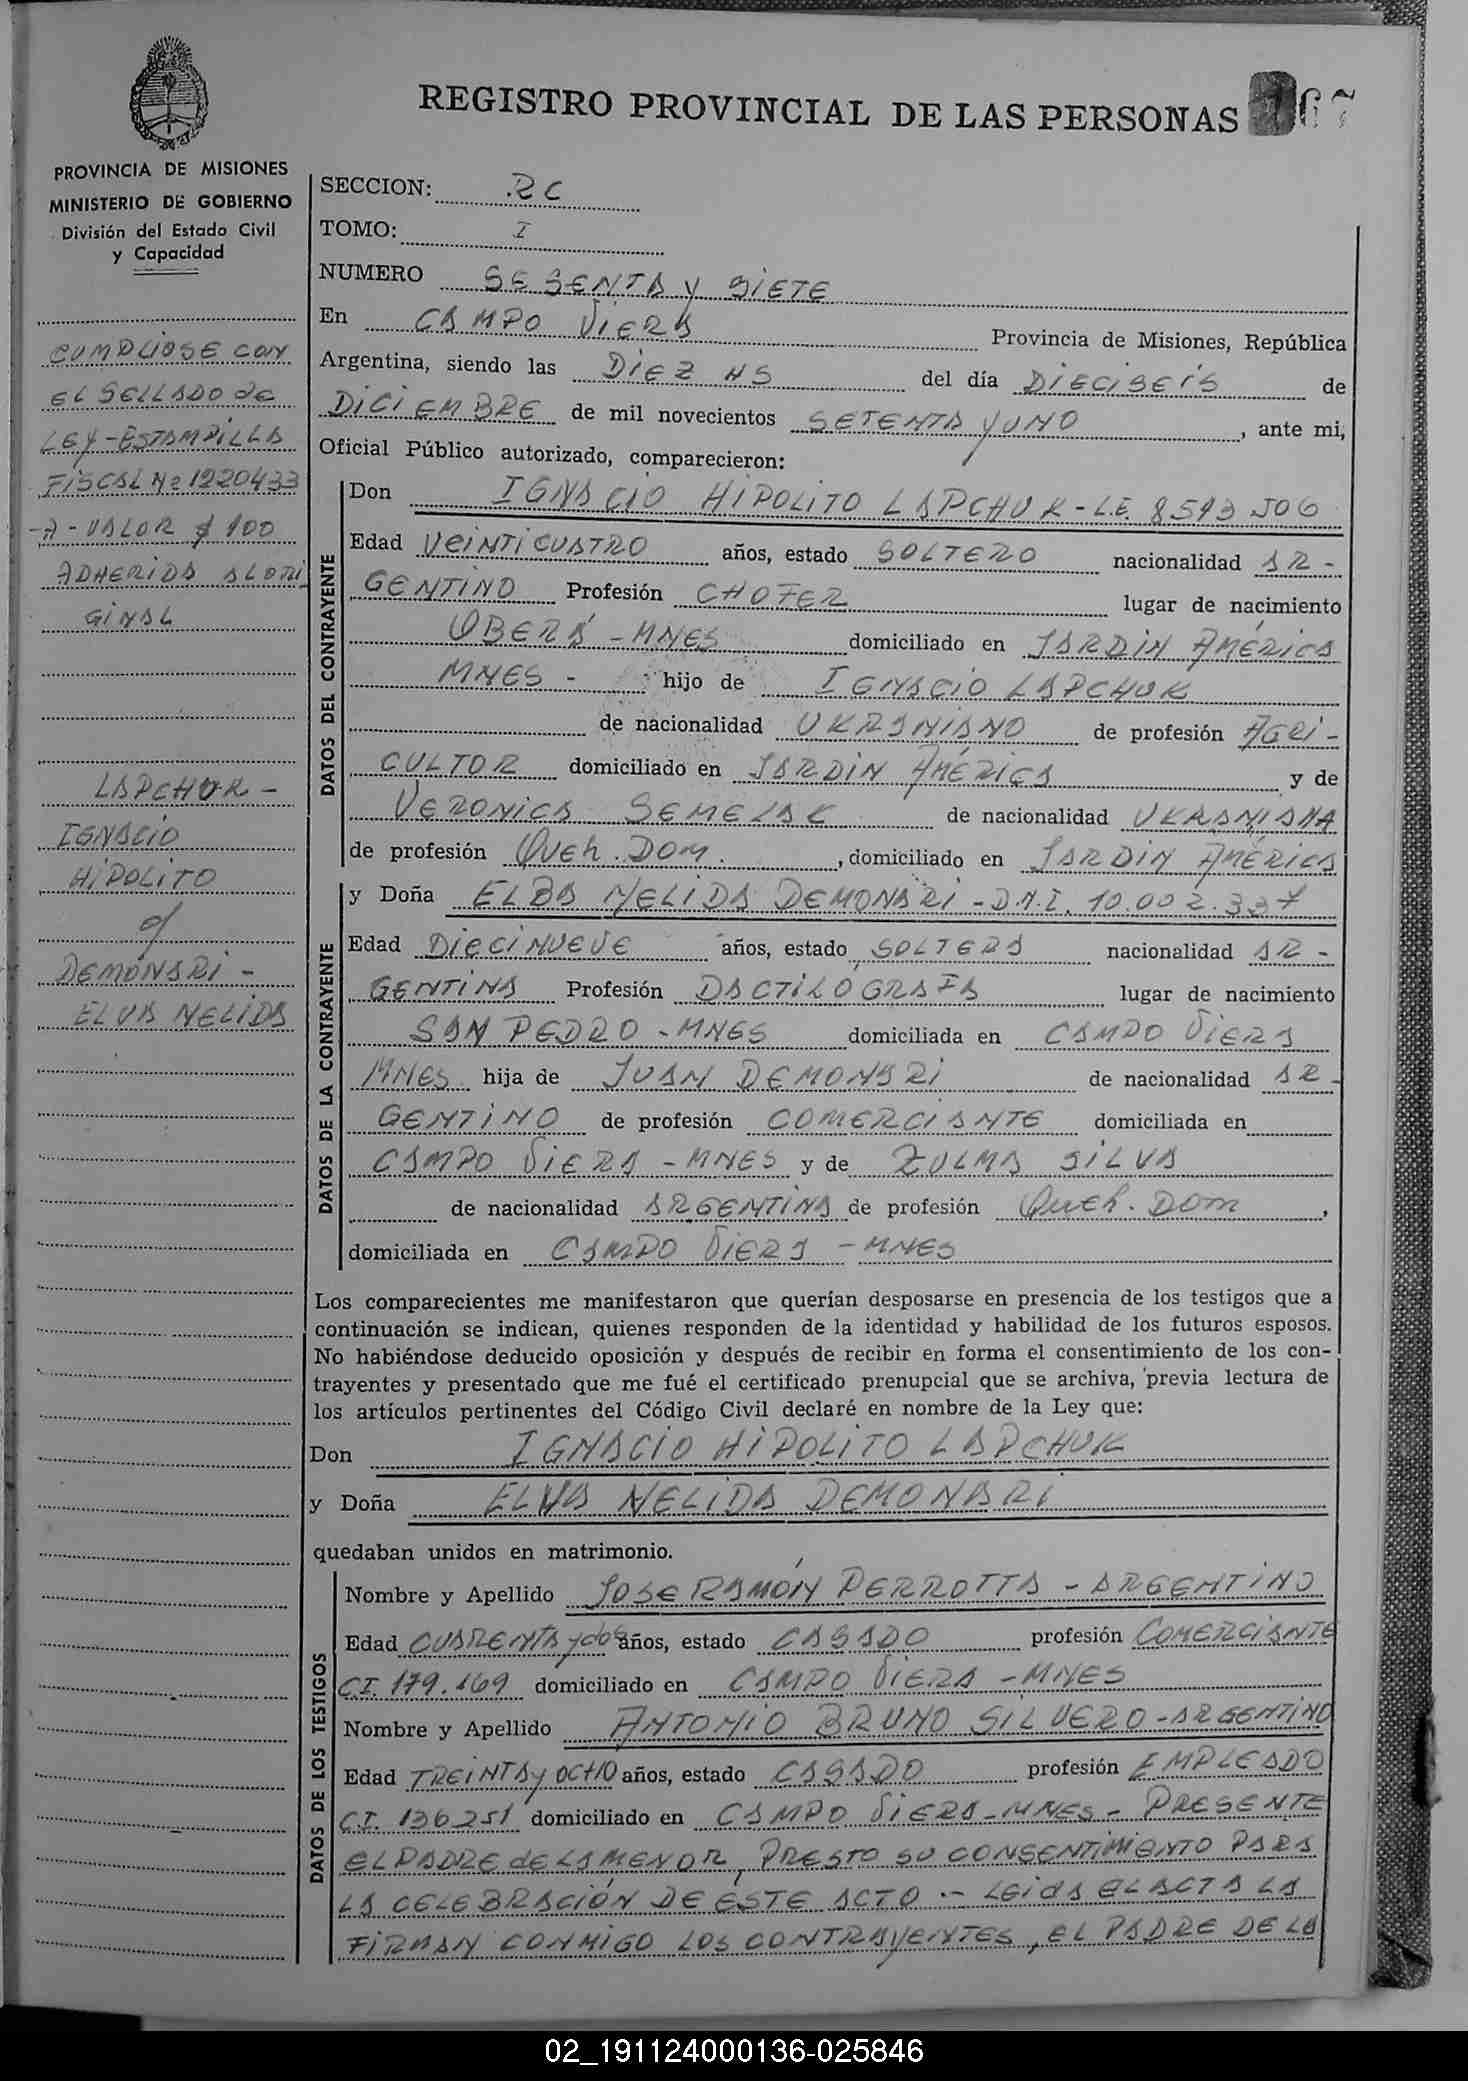 REGISTRO PROVINCIAL DE LAS PERSONAS 67
PROVINCIA DE MISIONES
MINISTERIO DE GOBIERNO
División del Estado Civil
y Capacidad
CUMPLIOSE CON
EL SELLADO de
LEY-ESTAMPILLA
FISCAL Nº 1220433
-A- VALOR $ 100
ADHERIDA AL ORI
GINAL
LAPCHUK-
IGNACIO
HIPOLITO
c/
DEMONARI-
ELVA NELIDA
SECCION: RC
TOMO: I
NUMERO SESENTA Y SIETE
En CAMPO VIERA Provincia de Misiones, República
Argentina, siendo las DIEZ HS del día DIECISEIS de
DICIEMBRE de mil novecientos SETENTA Y UNO, ante mi,
Oficial Público autorizado, comparecieron:
DATOS DEL CONTRAYENTE
Don IGNACIO HIPOLITO LAPCHUK-L.E. 8.593.506
Edad VEINTICUATRO años, estado SOLTERO nacionalidad AR-
GENTINO Profesión CHOFER lugar de nacimiento
OBERÁ-MNES domiciliado en JARDIN AMÉRICA
MNES- hijo de IGNACIO LAPCHUK
de nacionalidad UKRANIANO de profesión AGRI-
CULTOR domiciliado en JARDIN AMÉRICA y de
VERONICA SEMELAK de nacionalidad UKRANIANA
de profesión Queh. DOM., domiciliado en JARDIN AMÉRICA
DATOS DE LA CONTRAYENTE
y Doña ELBA NELIDA DEMONARI-D.N.I. 10.002.337
Edad DIECINUEVE años, estado SOLTERA nacionalidad AR-
GENTINA Profesión DACTILÓGRAFA lugar de nacimiento
SAN PEDRO-MNES domiciliada en CAMPO VIERA
MNES hija de JUAN DEMONARI de nacionalidad AR-
GENTINO de profesión COMERCIANTE domiciliada en
CAMPO VIERA-MNES y de ZULMA SILVA
de nacionalidad ARGENTINA de profesión Queh. DOM,
domiciliada en CAMPO VIERA-MNES
Los comparecientes me manifestaron que querían desposarse en presencia de los testigos que a
continuación se indican, quienes responden de la identidad y habilidad de los futuros esposos.
No habiéndose deducido oposición y después de recibir en forma el consentimiento de los con-
trayentes y presentado que me fué el certificado prenupcial que se archiva, previa lectura de
los artículos pertinentes del Código Civil declaré en nombre de la Ley que:
Don IGNACIO HIPOLITO LAPCHUK
y Doña ELVA NELIDA DEMONARI
quedaban unidos en matrimonio.
DATOS DE LOS TESTIGOS
Nombre y Apellido JOSE RAMÓN PERROTTA-ARGENTINO
Edad CUARENTA y dos años, estado CASADO profesión COMERCIANTE
CI. 179.169 domiciliado en CAMPO VIERA-MNES
Nombre y Apellido ANTONIO BRUNO SILVERO-ARGENTINO
Edad TREINTA y OCHO años, estado CASADO profesión EMPLEADO
CI. 136251 domiciliado en CAMPO VIERA-MNES-PRESENTE
EL PADRE de LA MENOR, PRESTO SU CONSENTIMIENTO PARA
LA CELEBRACIÓN DE ESTE ACTO-LEIDA EL ACTA LA
FIRMAN CONMIGO LOS CONTRAYENTES, EL PADRE DE LA
02_191124000136-025846